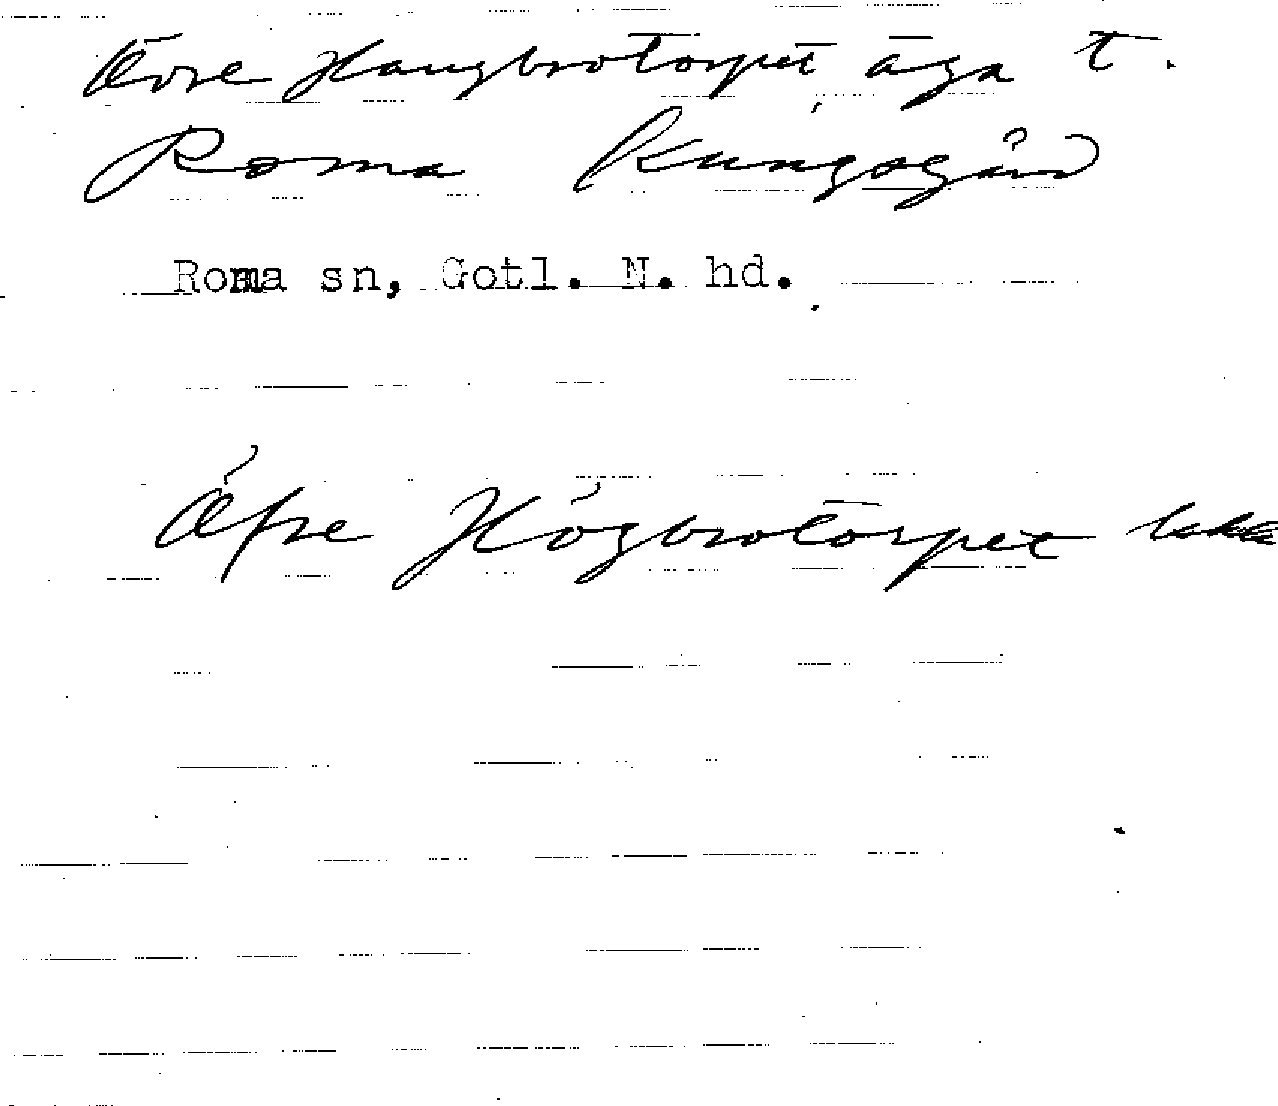 Övre Haugbrotorpet äga t.
Roma Kungsgård
Roma sn, Gotl. N. hd.
Öfre Högbrotorpet